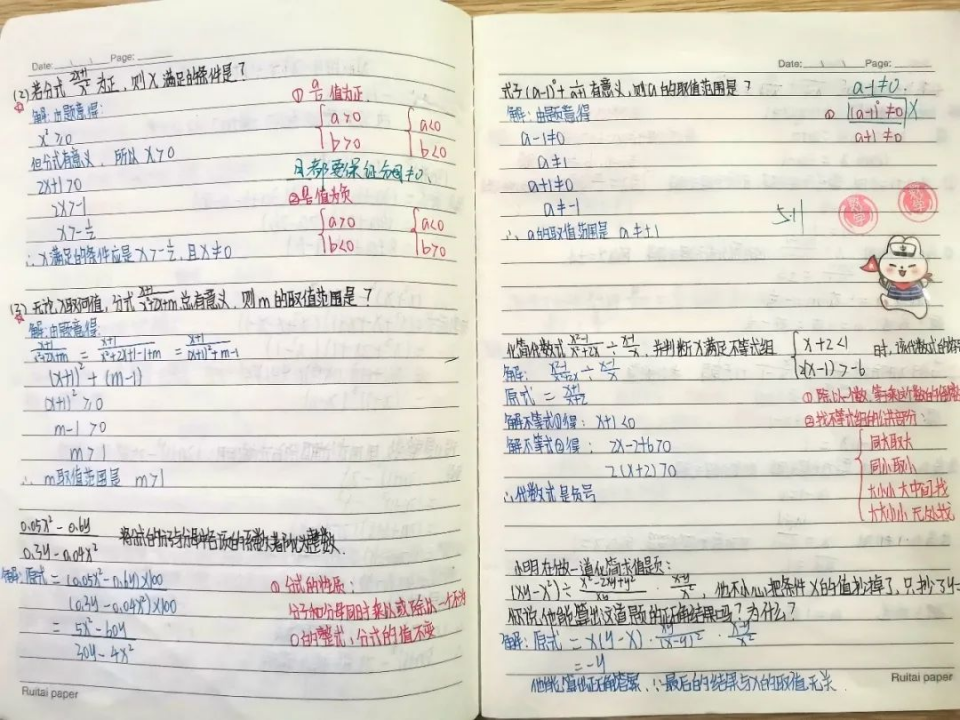 Date: Page:
(2) 若分式 (2x+1)/x² 为正，则x满足的条件是？
解：由题意得：
x²≥0
但分式有意义，所以x>0
2x+1>0
2x>-1
x>-1/2
∴x满足的条件应是x>-1/2，且x≠0
① a/b 值为正
{a>0 {a<0
{b>0 {b<0
且都要保证分母≠0
② 值为负
{a>0 {a<0
{b<0 {b>0
(3) 无论x取何值，分式 (x+1)/(x²+2x+m) 总有意义，则m的取值范围是？
解：由题意得：
(x+1)/(x²+2x+m) = (x+1)/(x²+2x+1-1+m) = (x+1)/((x+1)²+m-1)
(x+1)²+(m-1)
(x+1)²≥0
m-1>0
m>1
∴m取值范围是 m>1
(0.05x²-0.6y)/(0.3y-0.04x²) 将分式的分子与分母中各项的系数都化为整数.
解：原式 = ((0.05x²-0.6y)×100)/((0.3y-0.04x²)×100)
= (5x²-60y)/(30y-4x²)
① 分式的性质：
分子和分母同时乘以或除以一个不为
0的整式，分式的值不变
Ruitai paper
Date: Page:
有意义，则a的取值范围是？
解：由题意得
a-1≠0
a≠1
a+1≠0
a≠-1
∴a的取值范围是 a≠±1
a-1≠0
① (a-1)⁰≠0 X
a+1≠0
5.11
化简代数式 (x²-1)/(x²+2x) ÷ (x-1)/x，并判断x满足不等式组 {x+2<1 {2(x-1)>-6 时，该代数式的
解：(x²-1)/(x²+2x) ÷ (x-1)/x
原式 = (x+1)/(x+2)
解不等式①得：x+1<0
解不等式②得：2x-2+6>0
2(x+2)>0
∴代数式是负号
① 除以一个数，等于乘这个数的倒数
② 找不等式组的公共部分：
同大取大
同小取小
大小小大中间找
大大小小无处找
小明在做一道化简求值题：
(xy-x²)÷(x²-2xy+y²)/xy·(x-y)/x²，他不小心把条件x的值抄掉了，只抄了y=
你说他能算出这道题的正确结果吗？为什么？
解：原式 = x(y-x)·xy/(x-y)²·(x-y)/x²
=-y
他能算出正确答案，∵最后的结果与x的取值无关.
Ruitai paper